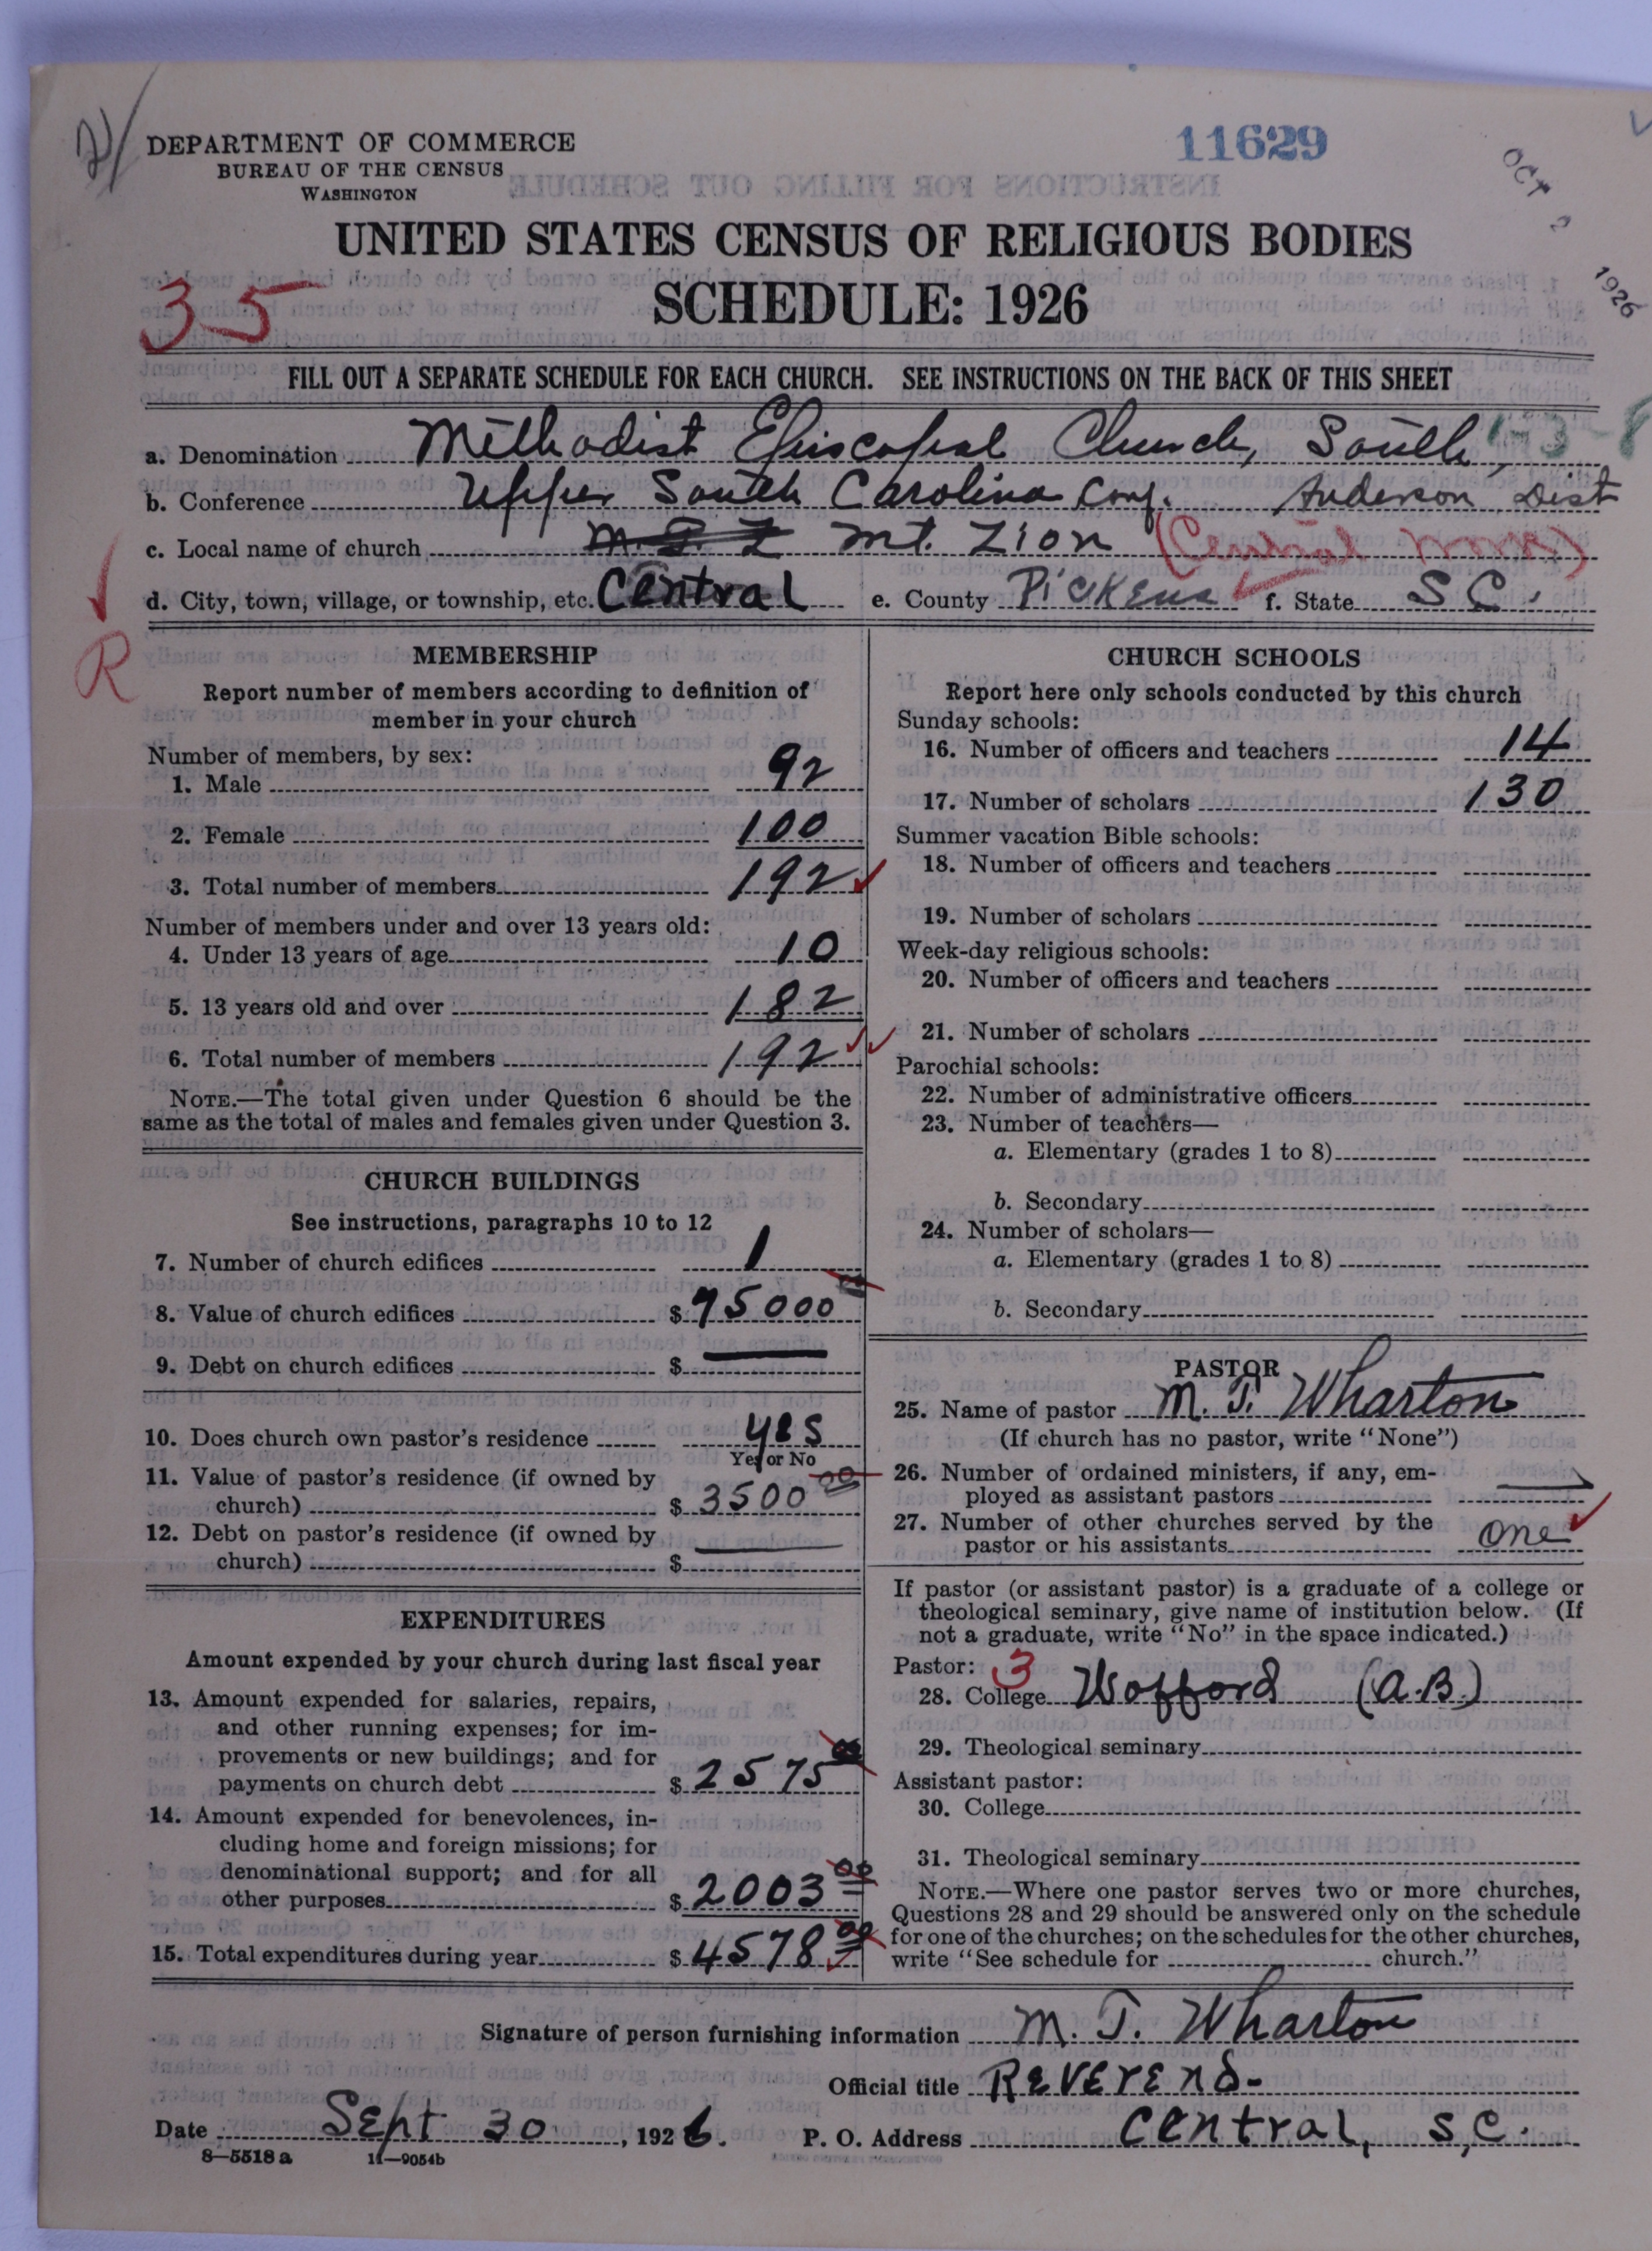 DEPARTMENT OF COMMERCE
BUREAU OF THE CENSUS
WASHINGTON
11629
OCT 2 1926
UNITED STATES CENSUS OF RELIGIOUS BODIES
SCHEDULE: 1926
35
FILL OUT A SEPARATE SCHEDULE FOR EACH CHURCH. SEE INSTRUCTIONS ON THE BACK OF THIS SHEET
a. Denomination Methodist Episcopal Church, South
b. Conference Upper South Carolina Conf. Anderson Dist
c. Local name of church Mt. Zion (Central
d. City, town, village, or township, etc. Central e. County Pickens f. State S C.
R
MEMBERSHIP
Report number of members according to definition of
member in your church
Number of members, by sex:
1. Male 92
2. Female 100
3. Total number of members 192
Number of members under and over 13 years old:
4. Under 13 years of age 10
5. 13 years old and over 182
6. Total number of members 192
NOTE.—The total given under Question 6 should be the
same as the total of males and females given under Question 3.
CHURCH BUILDINGS
See instructions, paragraphs 10 to 12
7. Number of church edifices 1
8. Value of church edifices $ 5000 00
9. Debt on church edifices $ —
10. Does church own pastor's residence yes
Yes or No
11. Value of pastor's residence (if owned by
church) $ 3500 00
12. Debt on pastor's residence (if owned by
church) $ —
EXPENDITURES
Amount expended by your church during last fiscal year
13. Amount expended for salaries, repairs,
and other running expenses; for im-
provements or new buildings; and for
payments on church debt $ 2575 00
14. Amount expended for benevolences, in-
cluding home and foreign missions; for
denominational support; and for all
other purposes $ 2003 00
15. Total expenditures during year $ 4578 00
CHURCH SCHOOLS
Report here only schools conducted by this church
Sunday schools:
16. Number of officers and teachers 14
17. Number of scholars 130
Summer vacation Bible schools:
18. Number of officers and teachers
19. Number of scholars
Week-day religious schools:
20. Number of officers and teachers
21. Number of scholars
Parochial schools:
22. Number of administrative officers
23. Number of teachers—
a. Elementary (grades 1 to 8)
b. Secondary
24. Number of scholars—
a. Elementary (grades 1 to 8)
b. Secondary
PASTOR
25. Name of pastor M. T. Wharton
(If church has no pastor, write "None")
26. Number of ordained ministers, if any, em-
ployed as assistant pastors —
27. Number of other churches served by the
pastor or his assistants one
If pastor (or assistant pastor) is a graduate of a college or
theological seminary, give name of institution below. (If
not a graduate, write "No" in the space indicated.)
Pastor: 3
28. College Wofford (A.B.)
29. Theological seminary
Assistant pastor:
30. College
31. Theological seminary
NOTE.—Where one pastor serves two or more churches,
Questions 28 and 29 should be answered only on the schedule
for one of the churches; on the schedules for the other churches,
write "See schedule for church."
Signature of person furnishing information M. T. Wharton
Official title Reverend-
Date Sept 30, 1926. P. O. Address Central, S.C.
8—5518 a 11—9054b